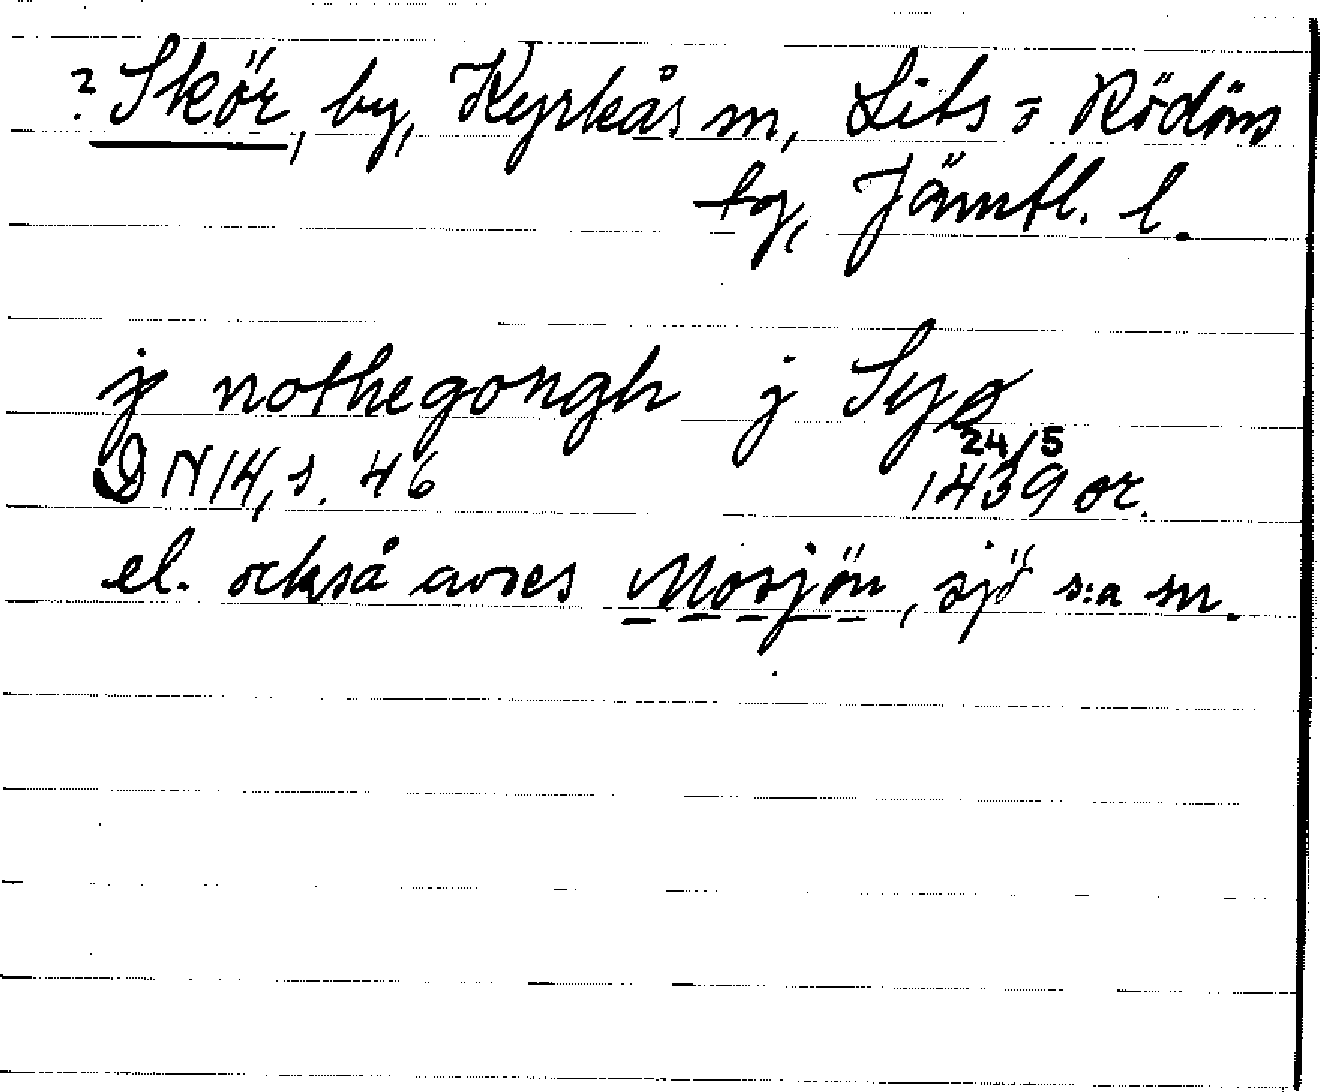 ? Skör, by, Kyrkås sn, Lits = Rödöns
tg, Jämtl. l.
j nothegongh j Syo
24/5
DN 14, s. 46 1439 or.
el. också avses Mosjön, sjö s:a sn.